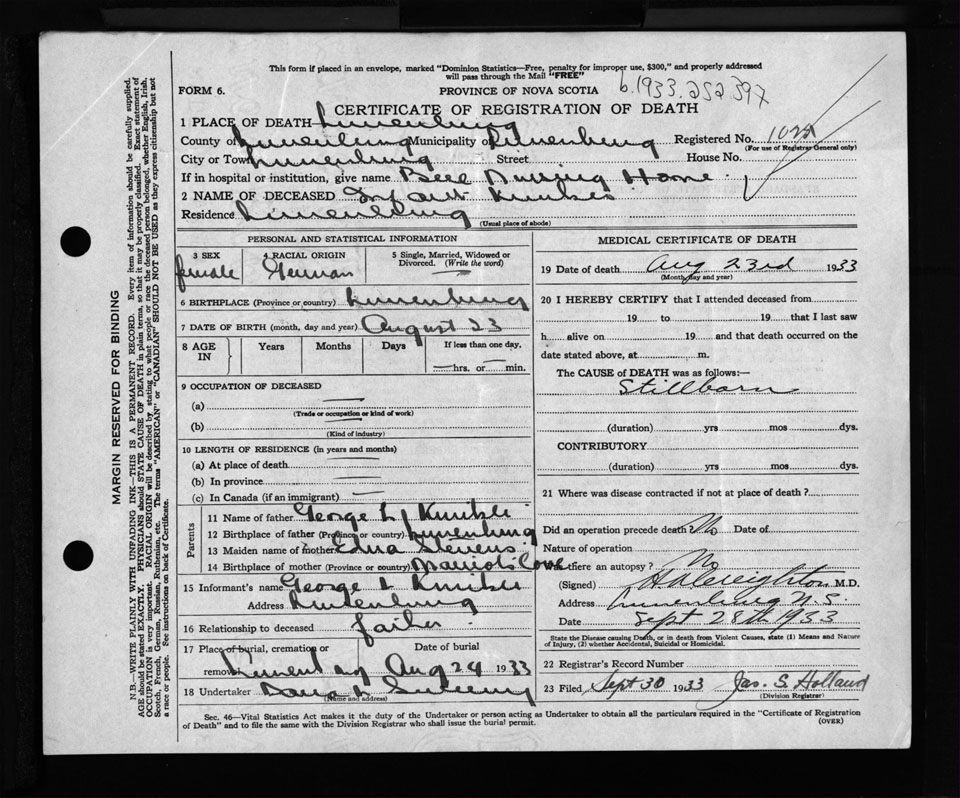 This form if placed in an envelope, marked "Dominion Statistics—Free, penalty for improper use, $300," and properly addressed
will pass through the Mail "FREE"
b.1933.252397
FORM 6.
PROVINCE OF NOVA SCOTIA
CERTIFICATE OF REGISTRATION OF DEATH
1 PLACE OF DEATH Lunenburg
County of Lunenburg Municipality of Lunenburg Registered No.
(For use of Registrar General only)
City or Town Lunenburg Street House No.
If in hospital or institution, give name Nursing Home
2 NAME OF DECEASED Infant
Residence Lunenburg
(Usual place of abode)
PERSONAL AND STATISTICAL INFORMATION
3 SEX 4 RACIAL ORIGIN 5 Single, Married, Widowed or
Divorced. (Write the word)
female German
6 BIRTHPLACE (Province or country) Lunenburg
7 DATE OF BIRTH (month, day and year) August 23
8 AGE IN Years Months Days If less than one day,
hrs. or min.
9 OCCUPATION OF DECEASED
(a)
(Trade or occupation or kind of work)
(b)
(Kind of industry)
10 LENGTH OF RESIDENCE (in years and months)
(a) At place of death
(b) In province
(c) In Canada (if an immigrant)
Parents
11 Name of father George L
12 Birthplace of father (Province or country) Lunenburg
13 Maiden name of mother Edna Stevens
14 Birthplace of mother (Province or country)
15 Informant's name George L
Address Lunenburg
16 Relationship to deceased father
17 Place of burial, cremation or Date of burial
removal Lunenburg Aug 24 1933
18 Undertaker
(Name and address)
MEDICAL CERTIFICATE OF DEATH
19 Date of death Aug 23rd 1933
(Month, day and year)
20 I HEREBY CERTIFY that I attended deceased from
19 to 19 that I last saw
h alive on 19 and that death occurred on the
date stated above, at m.
The CAUSE of DEATH was as follows:—
Stillborn
(duration) yrs mos dys.
CONTRIBUTORY
(duration) yrs mos dys.
21 Where was disease contracted if not at place of death?
Did an operation precede death No Date of
Nature of operation
Was there an autopsy? No
(Signed) Creighton M.D.
Address Lunenburg N.S.
Date Sept 28th 1933
State the Disease causing Death, or in death from Violent Causes, state (1) Means and Nature
of Injury, (2) whether Accidental, Suicidal or Homicidal.
22 Registrar's Record Number
23 Filed Sept 30 1933 Jas. S. Holland
(Division Registrar)
Sec. 46—Vital Statistics Act makes it the duty of the Undertaker or person acting as Undertaker to obtain all the particulars required in the "Certificate of Registration
of Death" and to file the same with the Division Registrar who shall issue the burial permit.
(OVER)
MARGIN RESERVED FOR BINDING
N.B.—WRITE PLAINLY WITH UNFADING INK—THIS IS A PERMANENT RECORD. Every item of information should be carefully supplied.
AGE should be stated EXACTLY. PHYSICIANS should STATE CAUSE OF DEATH in plain terms, so that it may be properly classified. Exact statement of
OCCUPATION is very important. RACIAL ORIGIN will be described by stating to what people or race the deceased person belonged, whether English, Irish,
Scotch, French, German, Russian, Ruthenian, etc. The terms "AMERICAN" or "CANADIAN" SHOULD NOT BE USED as they express citizenship but not
a race or people. See instructions on back of Certificate.